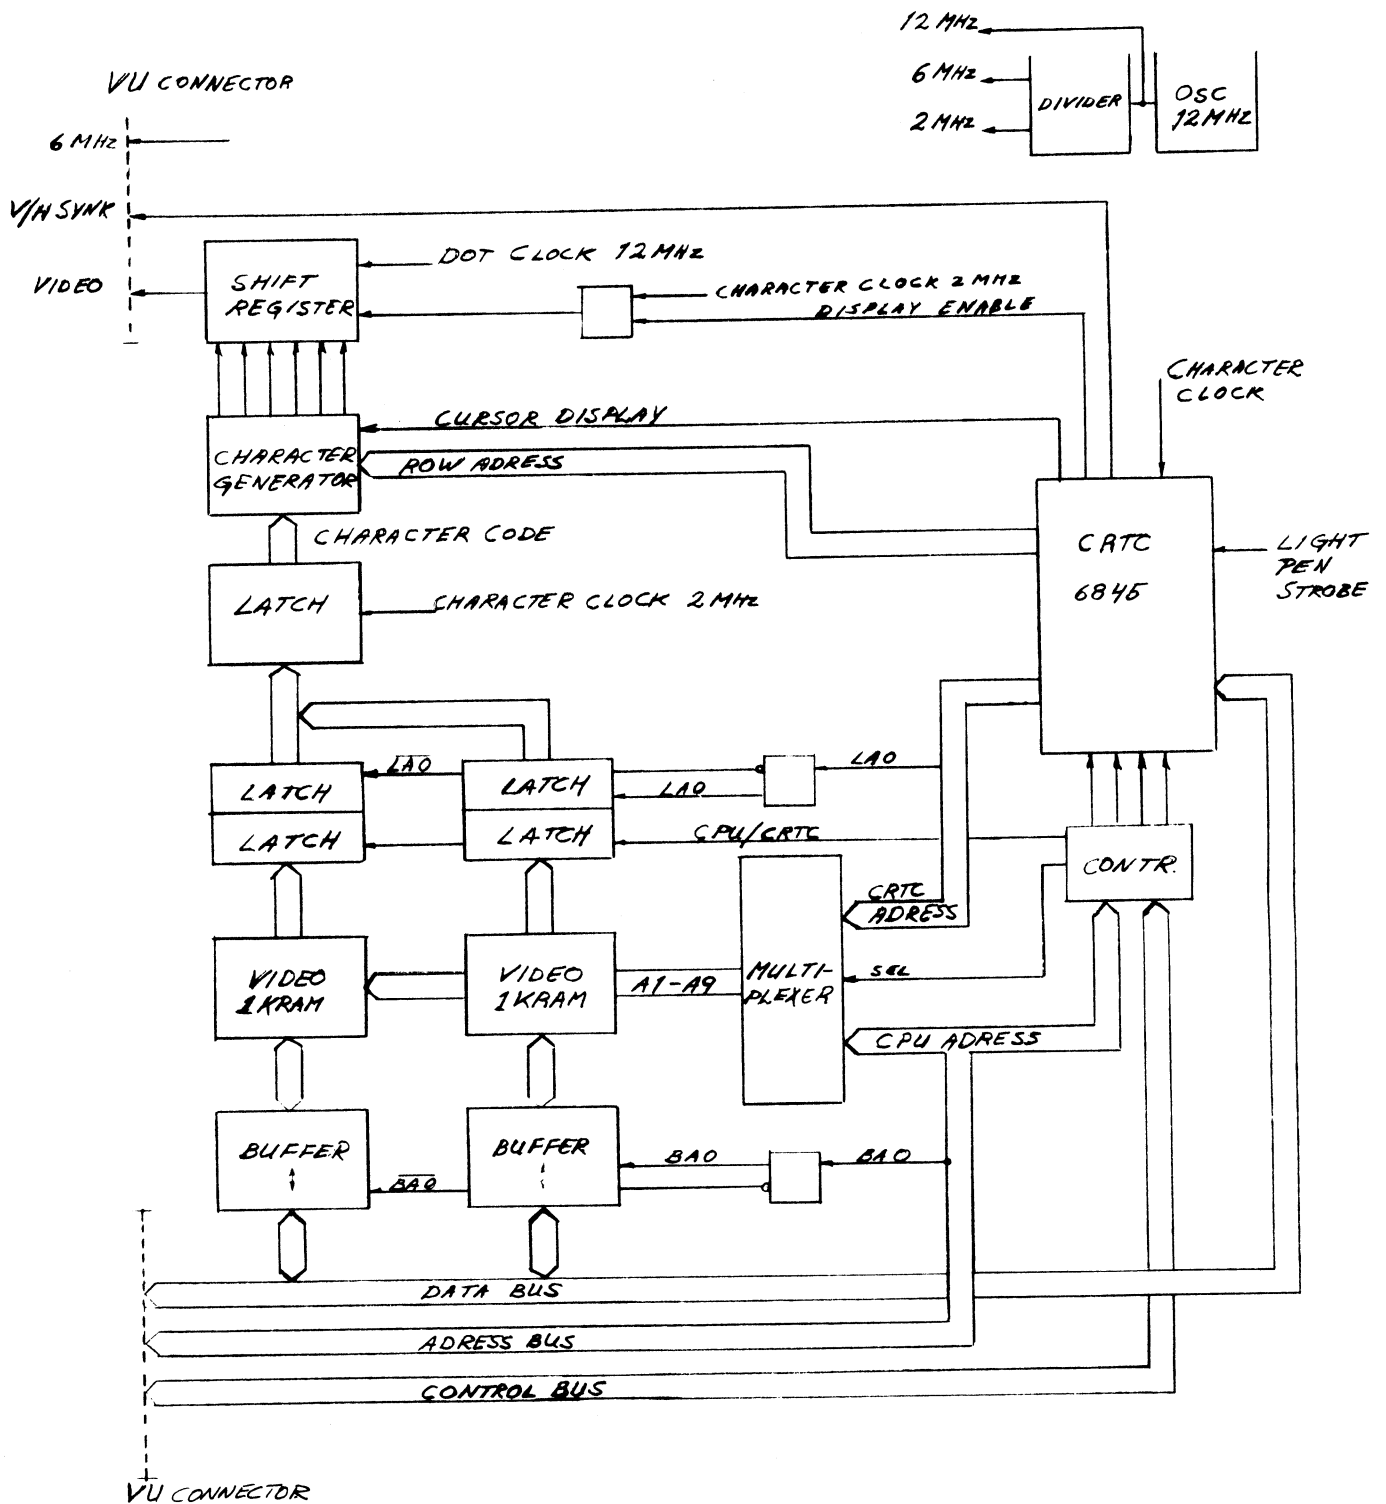 12 MHz
VU CONNECTOR
6 MHz
DIVIDER
OSC
12 MHz
2 MHz
6 MHz
V/H SYNK
VIDEO
SHIFT
REGISTER
DOT CLOCK 12 MHz
CHARACTER CLOCK 2 MHz
DISPLAY ENABLE
CHARACTER
CLOCK
CURSOR DISPLAY
CHARACTER
GENERATOR
ROW ADRESS
CHARACTER CODE
CRTC
6845
LIGHT
PEN
STROBE
LATCH
CHARACTER CLOCK 2 MHz
LATCH
LATCH
L̅A̅0̅
LATCH
LATCH
LA0
LA0
CPU/CRTC
CONTR.
CRTC
ADRESS
VIDEO
1KRAM
VIDEO
1KRAM
A1-A9
MULTI-
PLEXER
SEL
CPU ADRESS
BUFFER
B̅A̅0̅
BUFFER
BA0
BA0
DATA BUS
ADRESS BUS
CONTROL BUS
VU CONNECTOR